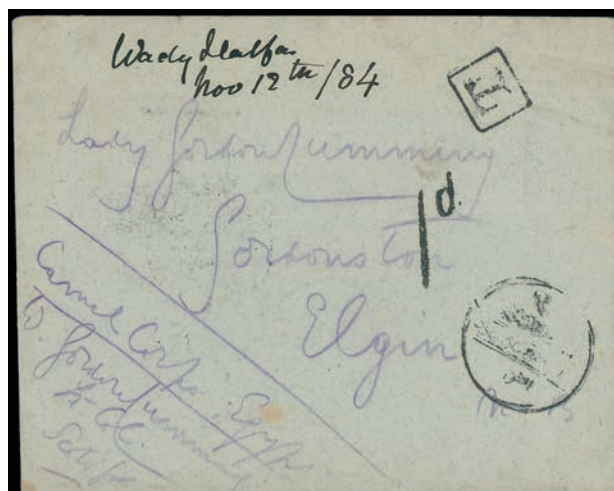 Wady Halfa
Nov 12th/84
T
Lady Gordon Cumming
1d.
Gordonston
Elgin
N.B
Camel Corps, Egypt
Gordon Cumming